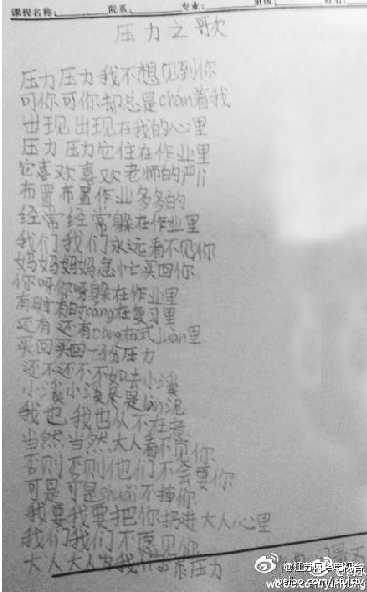 课程名称： 院系： 专业： 班组：
压力之歌
压力压力我不想见到你
可你可你却总是chán着我
出现出现在我的心里
压力压力它住在作业里
它喜欢喜欢老师的严li
布置布置作业多多的
经常经常躲在作业里
我们我们永远看不见你
妈妈妈妈急忙买回你
你呀你呀躲在作业里
有时有时cáng在复习里
还有还有cáng在式juàn里
买回买回一份压力
还不还不如去小溪
小溪小溪尽是làn泥
我也我也从不在意
当然当然大人看不见你
否则否则他们不会要你
可是可是shuǎi不掉你
我要我要把你扔进大人心里
我们我们不愿见你
大人大人为我们 压力
@江苏网络电视台
weibo.com/jstvjstv